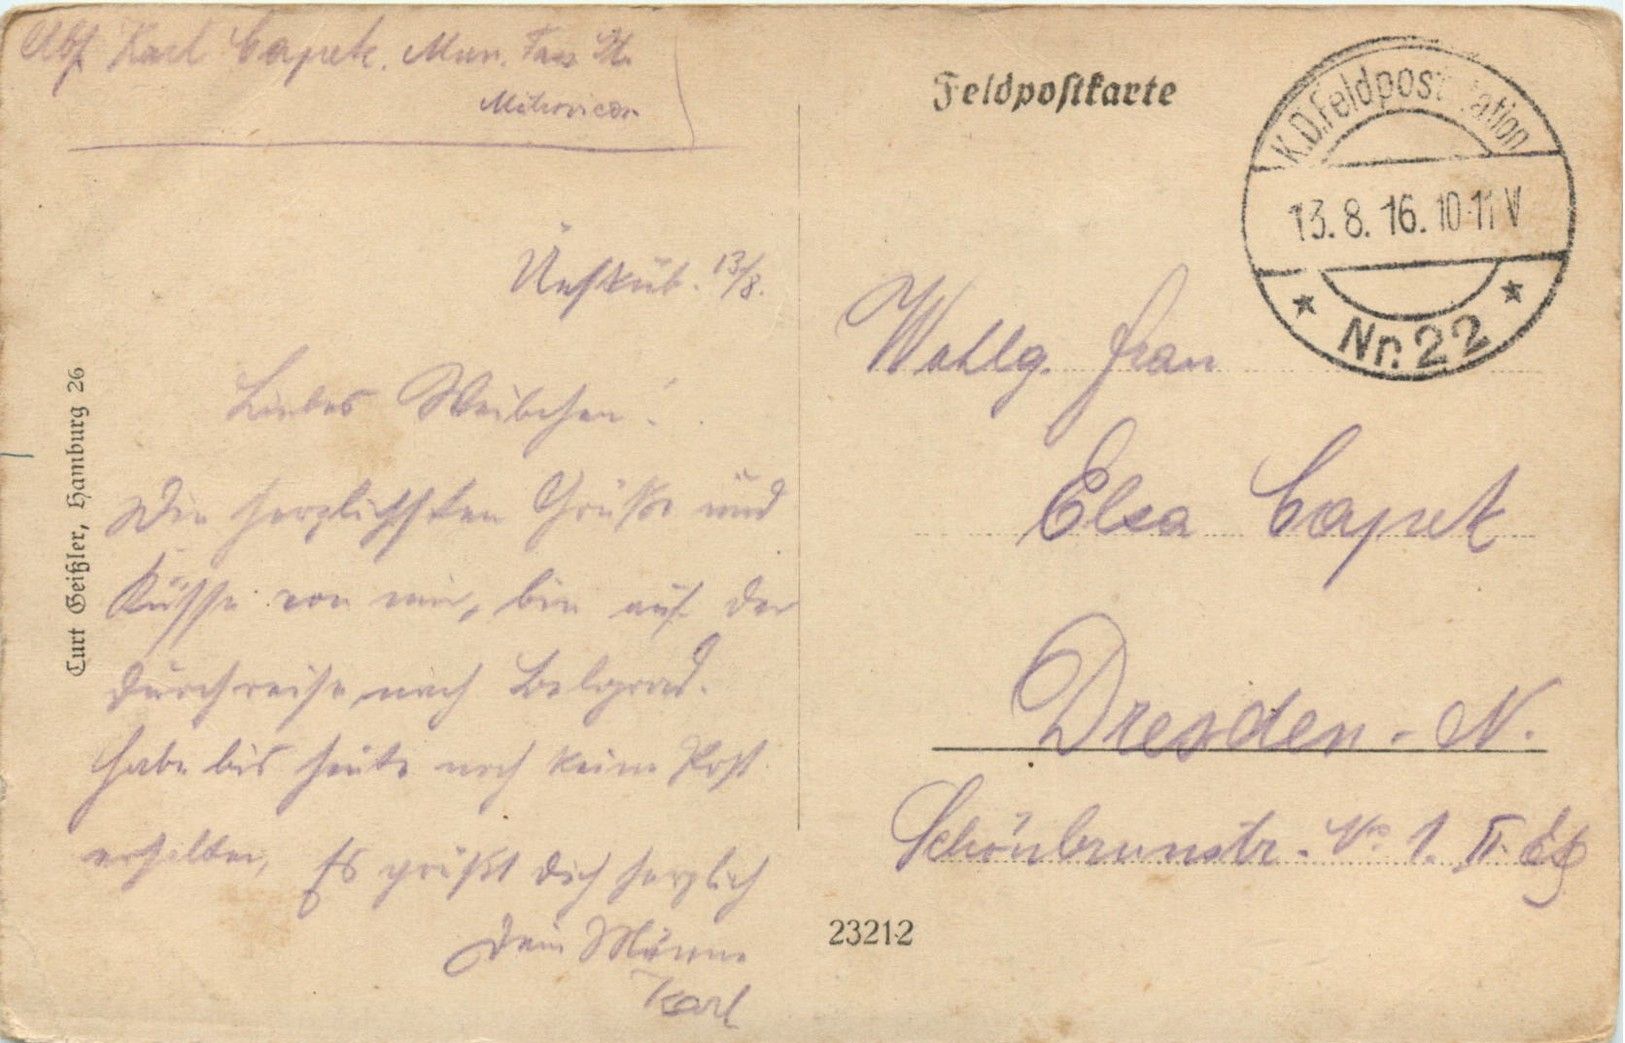 Abs. Karl Capek. Mun.
Mitrovica
Feldpostkarte
K.D. Feldpoststation
13.8.16. 10-11 V
* Nr. 22 *
Üesküb. 13/8.
Liebes Weibchen!
Die herzlichsten Grüße und
Küsse von mir, bin auf der
Durchreise nach Belgrad.
Habe bis heute noch keine Post
erhalten, Es grüßt dich herzlich
Dein Männe
Karl
Wohlg. Frau
Elsa Capek
Dresden-N.
Schönbrunnstr. No 1. II.
Curt Geißler, Hamburg 26
23212